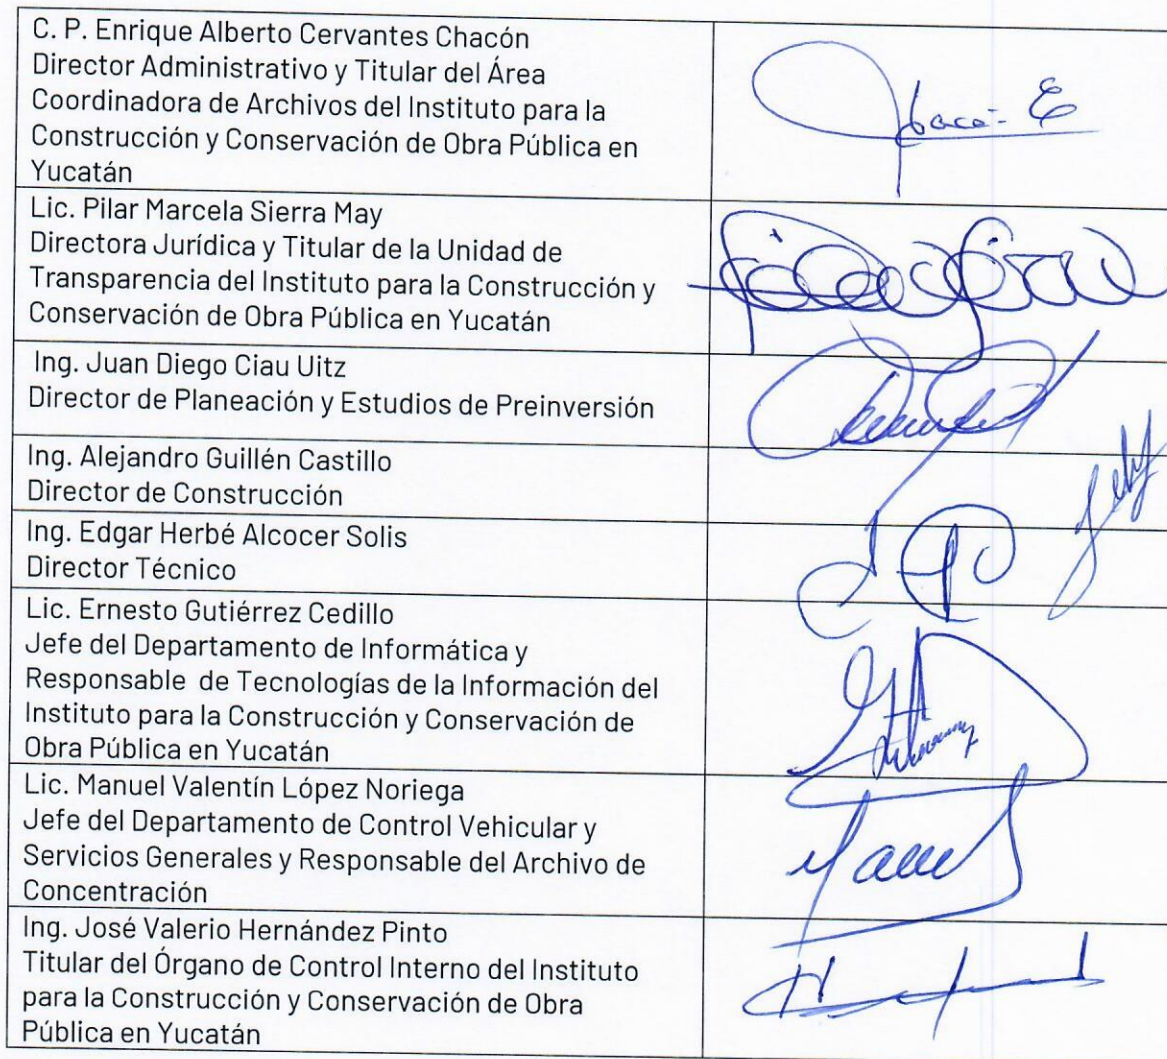 C. P. Enrique Alberto Cervantes Chacón
Director Administrativo y Titular del Área
Coordinadora de Archivos del Instituto para la
Construcción y Conservación de Obra Pública en
Yucatán
Lic. Pilar Marcela Sierra May
Directora Jurídica y Titular de la Unidad de
Transparencia del Instituto para la Construcción y
Conservación de Obra Pública en Yucatán
Ing. Juan Diego Ciau Uitz
Director de Planeación y Estudios de Preinversión
Ing. Alejandro Guillén Castillo
Director de Construcción
Ing. Edgar Herbé Alcocer Solis
Director Técnico
Lic. Ernesto Gutiérrez Cedillo
Jefe del Departamento de Informática y
Responsable de Tecnologías de la Información del
Instituto para la Construcción y Conservación de
Obra Pública en Yucatán
Lic. Manuel Valentín López Noriega
Jefe del Departamento de Control Vehicular y
Servicios Generales y Responsable del Archivo de
Concentración
Ing. José Valerio Hernández Pinto
Titular del Órgano de Control Interno del Instituto
para la Construcción y Conservación de Obra
Pública en Yucatán